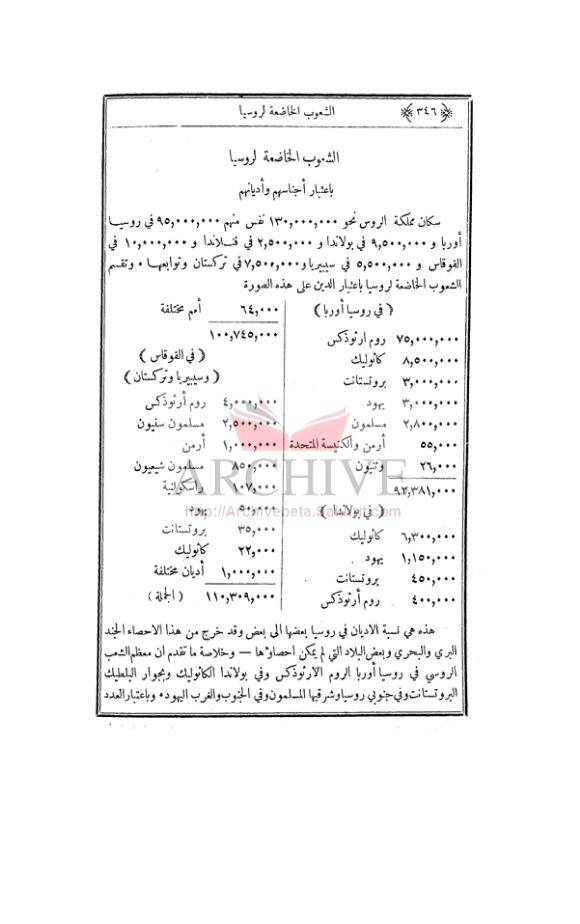 ﴿ ٣٤٦ ﴾ الشعوب الخاضعة لروسيا
الشعوب الخاضعة لروسيا
باعتبار أجناسهم وأديانهم
سكان مملكة الروس نحو ١٣٠,٠٠٠,٠٠٠ نفس منهم ٩٥,٠٠٠,٠٠٠ في روسيا
أوربا و ٩,٥٠٠,٠٠٠ في بولاندا و ٢,٥٠٠,٠٠٠ في فنلاندا و ١٠,٠٠٠,٠٠٠ في
القوقاس و ٥,٥٠٠,٠٠٠ في سيبيريا و ٧,٥٠٠,٠٠٠ في تركستان وتوابعها ٠ وتقسم
الشعوب الخاضعة لروسيا باعتبار الدين على هذه الصورة
( في روسيا أوربا )
٧٥,٠٠٠,٠٠٠ روم ارثوذكس
٨,٥٠٠,٠٠٠ كاثوليك
٣,٠٠٠,٠٠٠ بروتستانت
٣,٠٠٠,٠٠٠ يهود
٢,٨٠٠,٠٠٠ مسلمون
٥٥,٠٠٠ أرمن والكنيسة المتحدة
٢٦,٠٠٠ وثنيون
٩٢,٣٨١,٠٠٠
( في بولاندا )
٦,٣٠٠,٠٠٠ كاثوليك
١,١٥٠,٠٠٠ يهود
٤٥٠,٠٠٠ بروتستانت
٤٠٠,٠٠٠ روم أرثوذكس
٦٤,٠٠٠ أمم مختلفة
١٠٠,٧٤٥,٠٠٠
( في القوقاس )
( وسيبيريا وتركستان )
٤,٠٠٠,٠٠٠ روم أرثوذكس
٢,٥٠٠,٠٠٠ مسلمون سنيون
١,٠٠٠,٠٠٠ أرمن
٨٥٠,٠٠٠ مسلمون شيعيون
١٠٧,٠٠٠ راسكولنية
٥٠,٠٠٠ يهود
٣٥,٠٠٠ بروتستانت
٢٢,٠٠٠ كاثوليك
١,٠٠٠,٠٠٠ أديان مختلفة
١١٠,٣٠٩,٠٠٠ ( الجملة )
هذه هي نسبة الاديان في روسيا بعضها الى بعض وقد خرج من هذا الاحصاء الجند
البري والبحري وبعض البلاد التي لم يمكن احصاؤها — وخلاصة ما تقدم ان معظم الشعب
الروسي في روسيا أوربا الروم الارثوذكس وفي بولاندا الكاثوليك وبجوار البلطيك
البروتستانت وفي جنوبي روسيا وشرقيها المسلمون وفي الجنوب والغرب اليهود ٠ وباعتبار العدد
ARCHIVE